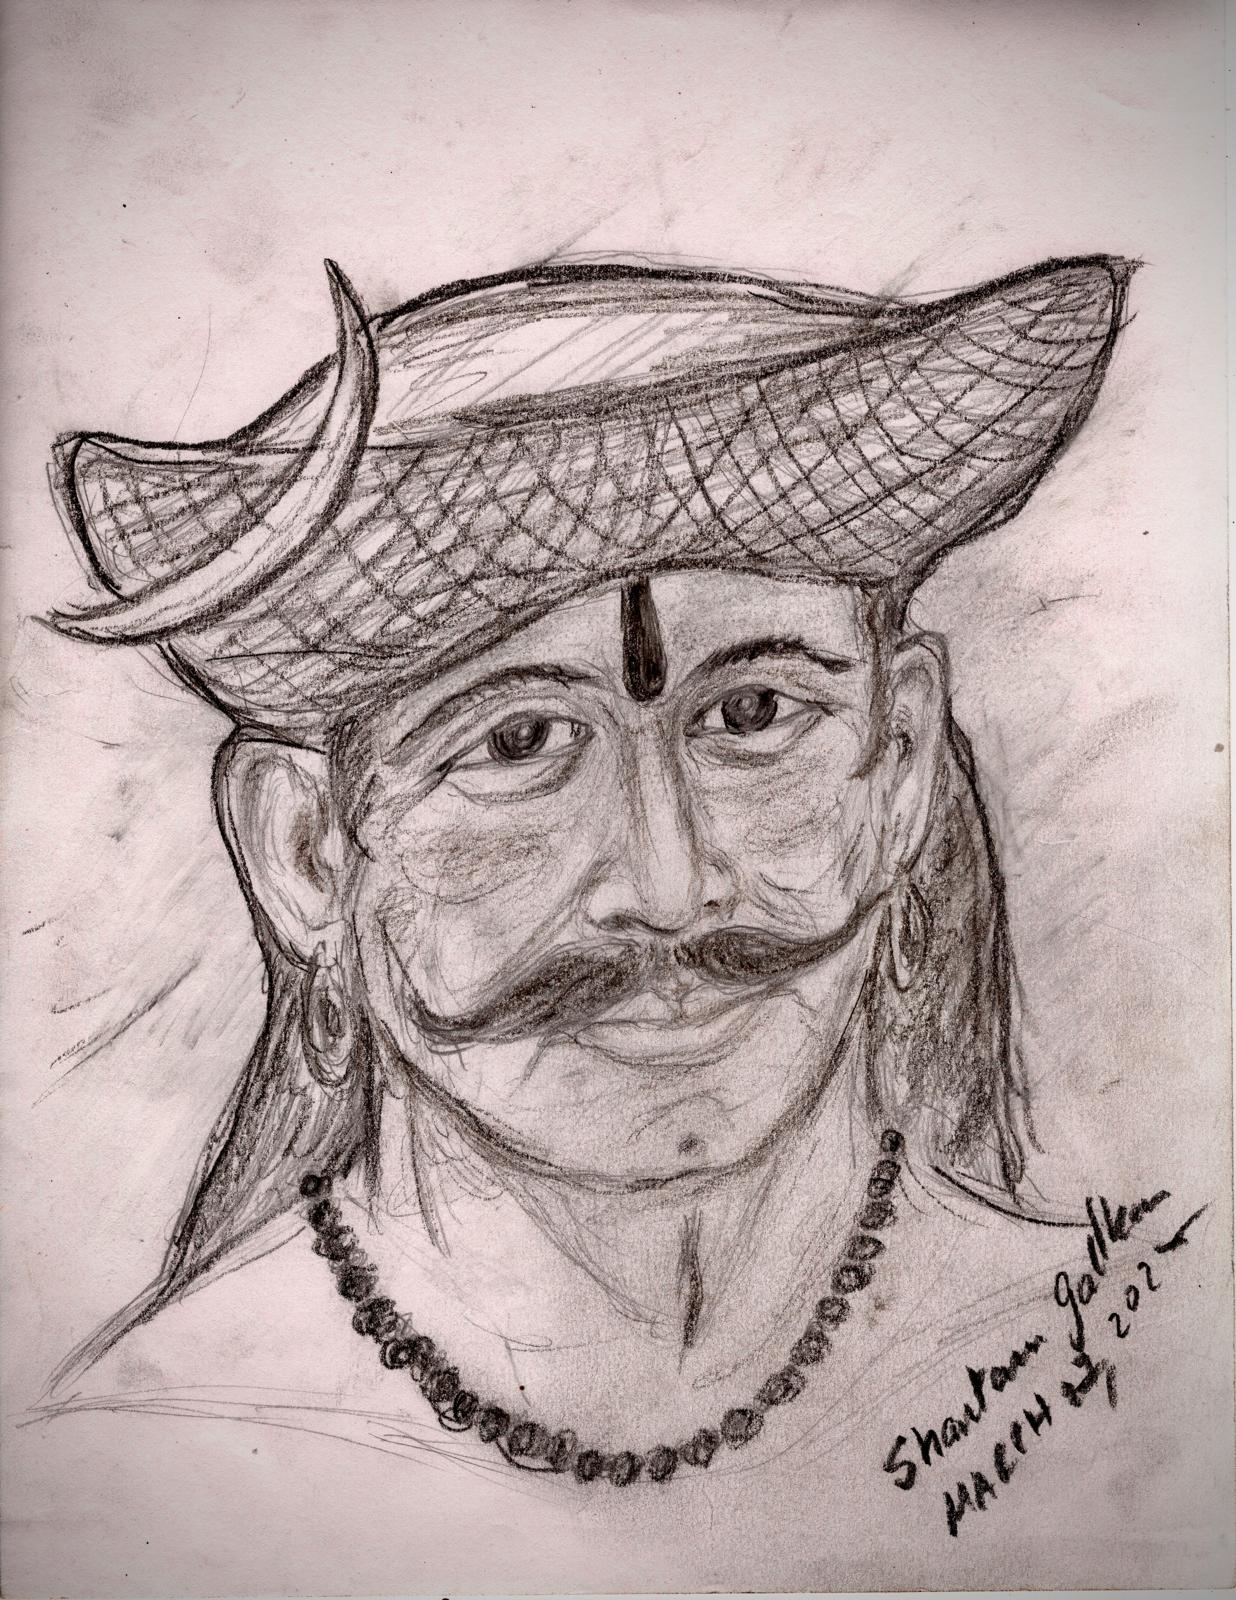 Shantaram Galkar
MARCH 27, 2025